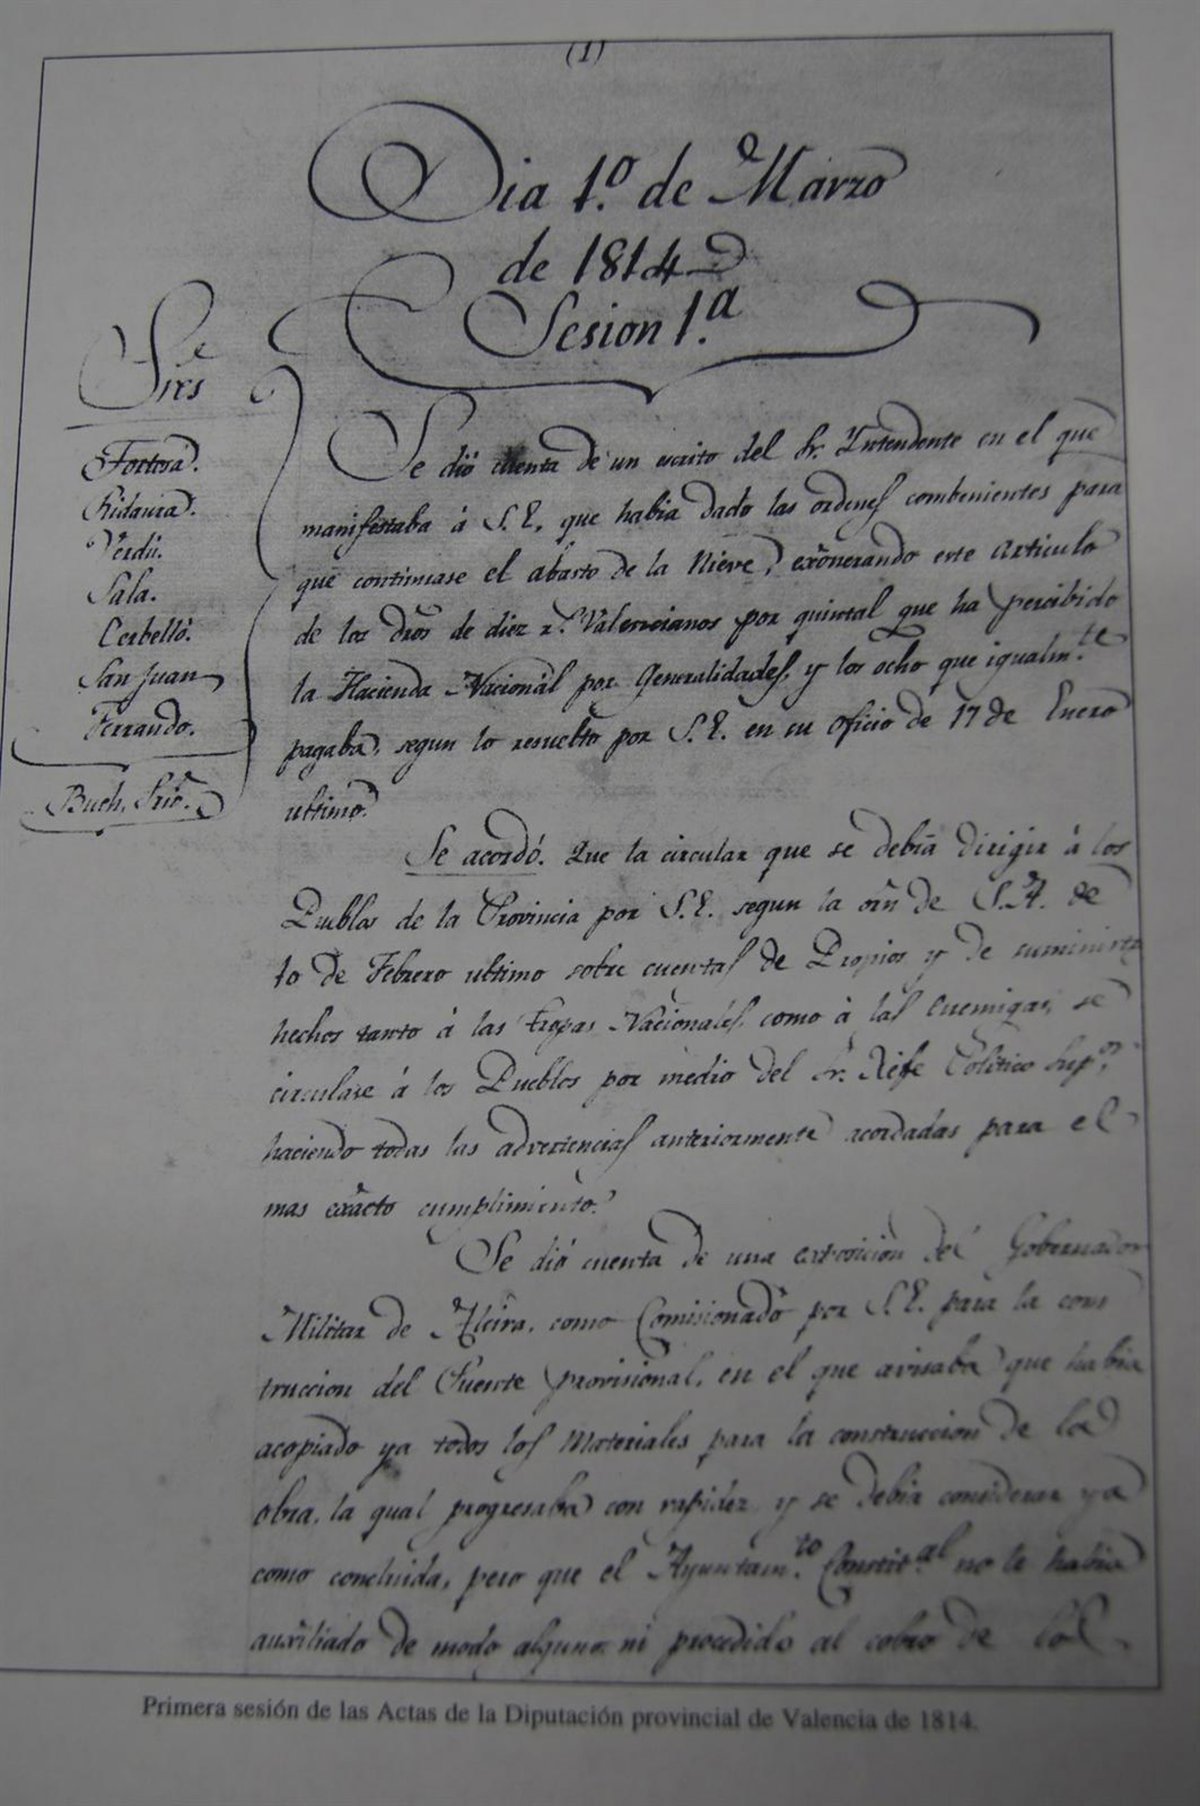 (1)
Dia 1.º de Marzo
de 1814
Sesion 1.ª
Sres
Tortosa.
Ridaura.
Verdú.
Sala.
Cerbelló.
San Juan
Ferrando.
Buch. Srio.
Se dió cuenta de un escrito del Sr. Yntendente en el que
manifestaba á S.E. que habia dado las ordenes combenientes para
que continuase el abasto de la Nieve, exônerando este articulo
de los dros de diez r.s Valencianos por quintal que ha percibido
la Hacienda Nacional por Generalidades, y los ocho que igualm.te
pagaba, segun lo resuelto por S.E. en su oficio de 17 de Enero
ultimo.
Se acordó. Que la circular que se debia dirigir á los
Pueblos de la Provincia por S.E. segun la orn de S.A. de
10 de Febrero ultimo sobre cuentas de Propios y de suministros
hechos tanto á las tropas Nacionales, como à las Enemigas, se
circulase á los Pueblos por medio del Sr. Xefe Politico Sup.or
haciendo todas las advertencias anteriormente acordadas para el
mas exâcto cumplimiento.
Se dió cuenta de una exposicion del Gobernador
Militar de Alcira, como Comisionado por S.E. para la cons
truccion del Puente provisional, en el que avisaba que habia
acopiado ya todos los Materiales para la construccion de la
obra, la qual progresaba con rapidez y se debia considerar ya
como concluida, pero que el Ayuntam.to Constit.al no le habia
auxîliado de modo alguno ni procedido al cobro de los
Primera sesión de las Actas de la Diputación provincial de Valencia de 1814.